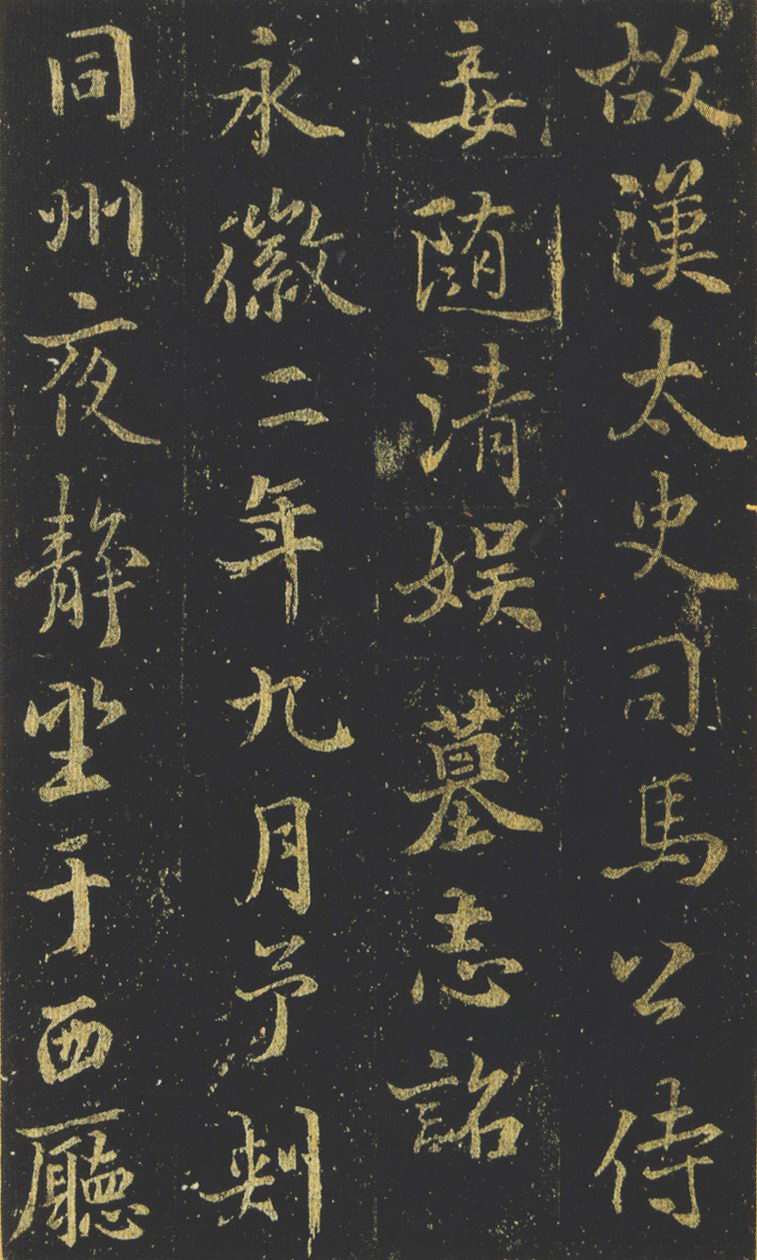 故漢太史司馬公侍
妾隨清娱墓志銘
永徽二年九月予刺
同州夜静坐于西廳